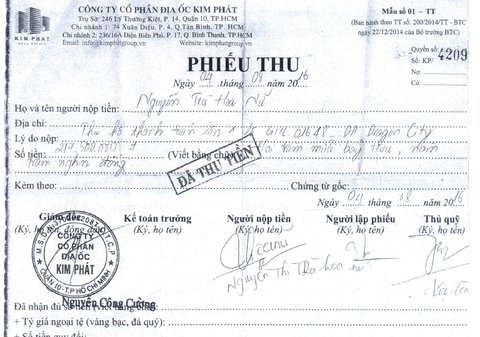 KIM PHÁT
REAL ESTATE
CÔNG TY CỔ PHẦN ĐỊA ỐC KIM PHÁT
Trụ Sở: 246 Lý Thường Kiệt, P. 14, Quận 10, TP.HCM
Chi nhánh 1: 74 Xuân Diệu, P. 4, Q.Tân Bình, TP. HCM
Chi nhánh 2: 236/16A Điện Biên Phủ, P. 17, Q. Bình Thạnh, TP.HCM
Email: info@kimphatgroup.vn Website: kimphatgroup.vn
Mẫu số 01 - TT
(Ban hành theo TT số. 200/2014/TT - BTC
ngày 22/12/2014 của Bộ trưởng BTC)
PHIẾU THU
Ngày 04 .tháng 08 năm 2016
Quyển số:
Số: KP/ 4209
Nợ:
Có:
Họ và tên người nộp tiền: Nguyễn Trà Hoa Nữ
Địa chỉ:
Lý do nộp: Thu hộ thanh toán lần 1 - DA Dragon City
Số tiền: (Viết bằng chữ) trăm mười bảy triệu, năm
trăm nghìn đồng
ĐÃ THU TIỀN
Kèm theo: Chứng từ gốc:
Ngày 04 tháng 08 năm 2016
Giám đốc Kế toán trưởng Người nộp tiền Người lập phiếu Thủ quỹ
(Ký, họ tên, đóng dấu) (Ký, họ tên) (Ký, họ tên) (Ký, họ tên) (Ký, họ tên)
CÔNG TY
CỔ PHẦN
ĐỊA ỐC
KIM PHÁT
QUẬN 10 - T.P HỒ CHÍ MINH
Nguyễn Thị Trà Hoa
Nguyễn Công Cường
Đã nhận đủ số tiền (viết bằng chữ):
+ Tỷ giá ngoại tệ (vàng bạc, đá quý):
+ Số tiền quy đổi: